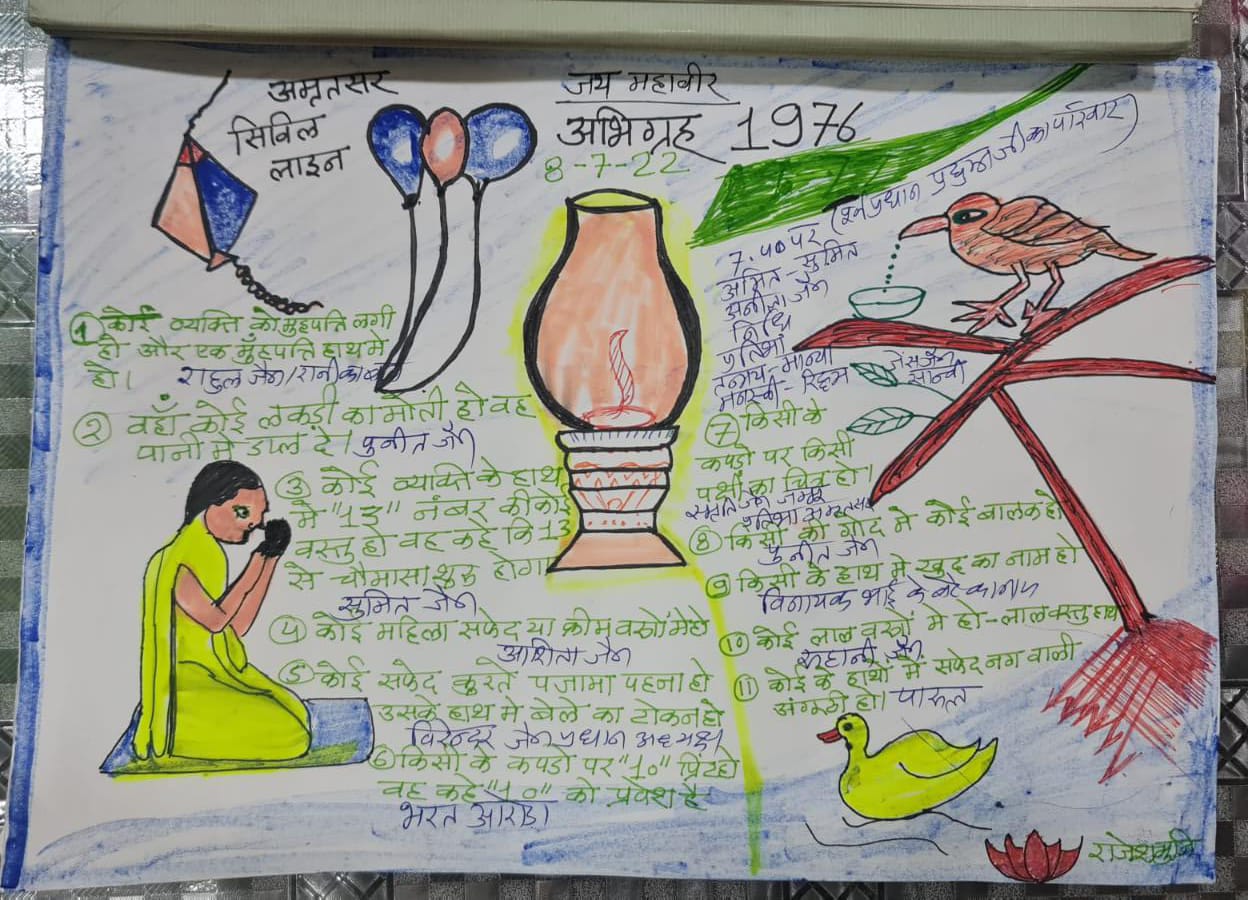 अमृतसर
सिविल
लाइन
जय महावीर
अभिग्रह 1976
8-7-22
① कोई व्यक्ति को मुहपत्ति लगी
हो और एक मुँहपत्ति हाथ मे
हो।
राहुल जैन/
② वहाँ कोई लकड़ी का मोती हो वह
पानी मे डाल दे। पुनीत जैन
③ कोई व्यक्ति के हाथ
मे "13" नंबर की कोई
वस्तु हो वह कहे कि 13
से चौमासा शुरू होगा
सुमित जैन
④ कोई महिला सफेद या क्रीम वस्त्रों मे हो
आशिता जैन
⑤ कोई सफेद कुरते पजामा पहना हो
उसके हाथ मे बेले का टोकन हो
विरेन्दर जैन प्रधान अध्यक्ष
⑥ किसी के कपडो पर "10" प्रिंट हो
वह कहे "10" को प्रवेश है
भरत अरोड़ा
7.50 पर (प्रधान जी का परिवार)
अमित-सुमित
अनीता जैन
निधि
प्रतिभा
तन्मय-मान्या
मनस्वी-रिद्दम
जेसजैन
सान्वी
⑦ किसी के
कपडो पर किसी
पक्षी का चित्र हो।
स्मृति जैन जम्मू
प्रतिभा अमृतसर
⑧ किसी की गोद मे कोई बालक हो
पुनीत जैन
⑨ किसी के हाथ मे खुद का नाम हो
विनायक भाई के बेटे का नाम
⑩ कोई लाल वस्त्रों मे हो-लाल वस्तु हाथ
कहानी जैन
⑪ कोई के हाथों मे सफेद नग वाली
अंगूठी हो। पारुल